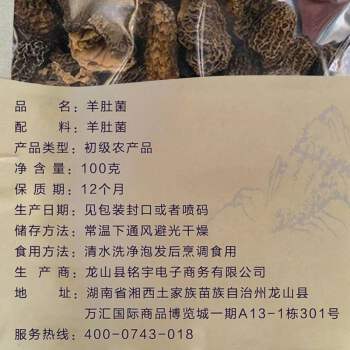 品　　名：羊肚菌
配　　料：羊肚菌
产品类型：初级农产品
净 含 量：100克
保 质 期：12个月
生产日期：见包装封口或者喷码
储存方法：常温下通风避光干燥
食用方法：清水洗净泡发后烹调食用
生 产 商：龙山县铭宇电子商务有限公司
地　　址：湖南省湘西土家族苗族自治州龙山县
万汇国际商品博览城一期A13-1栋301号
服务热线：400-0743-018